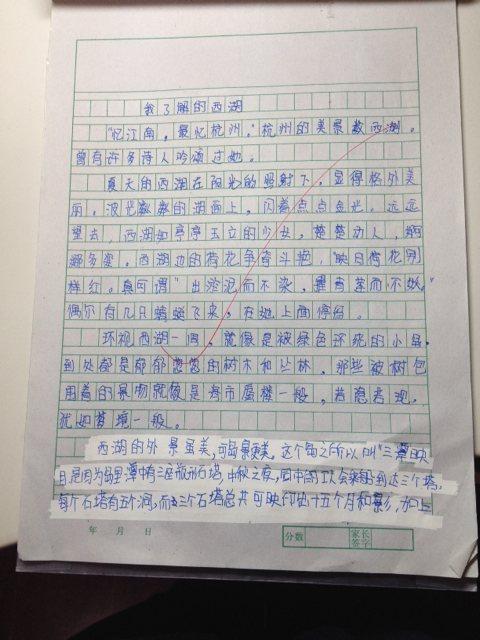 我了解的西湖
“忆江南，最忆杭州。”杭州的美景数西湖。
曾有许多诗人吟颂过她。
夏天的西湖在阳光的照射下，显得格外美
丽。波光粼粼的湖面上，闪着点点金光。远远
望去，西湖如亭亭玉立的少女，楚楚动人，婀
娜多姿。西湖边的荷花争奇斗艳，“映日荷花别
样红。真可谓”出淤泥而不染，濯青莲而不妖。”
偶尔有几只蜻蜓飞来，在她上面停留。
环视西湖一周，就像是被绿色环绕的小岛。
到处都是郁郁葱葱的树木和丛林，那些被树包
围着的景物就像是海市蜃楼一般，若隐若现。
犹如梦境一般。
西湖的外景虽美，可岛景更美。这个岛之所以叫“三潭映
月是因为岛里潭中有三座瓶形石塔，中秋之夜，园中的工人会乘船到达三个塔。
每个石塔有五个洞，而三个石塔总共可映印出十五个月和影，加上
年 月 日
分数
家长
签字